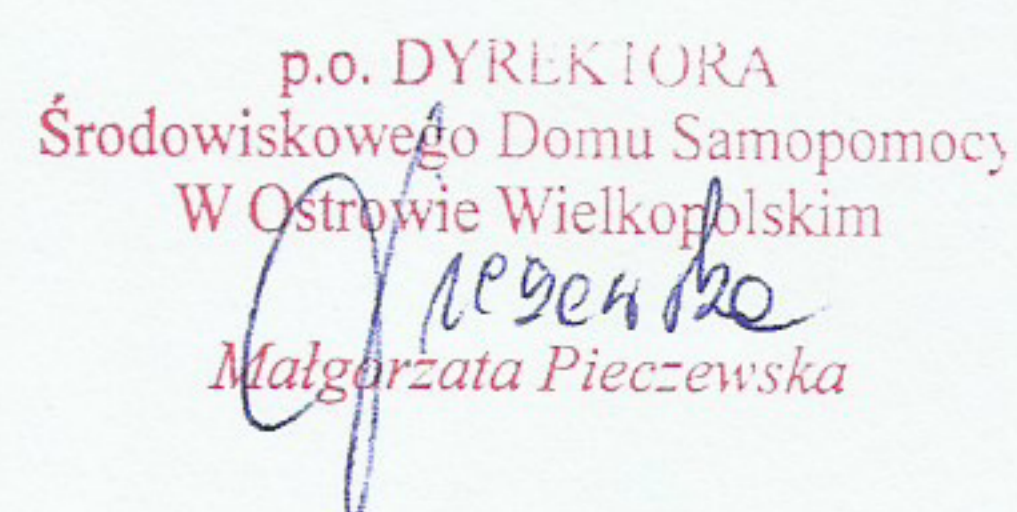 p.o. DYREKTORA
Środowiskowego Domu Samopomocy
W Ostrowie Wielkopolskim
Małgorzata Pieczewska